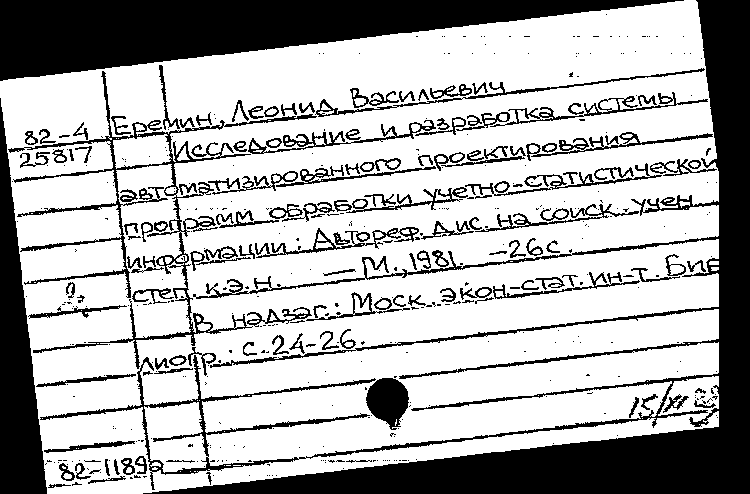 82-4 Еремин, Леонид Васильевич
25817 Исследование и разработка системы
автоматизированного проектирования
программ обработки учетно-статистической
информации: Автореф. дис. на соиск. учен.
степ. к.э.н. — М., 1981. — 26с.
В надзаг.: Моск. экон.-стат. ин-т. Биб
лиогр.: с. 24-26.
15/XI
82-1189а